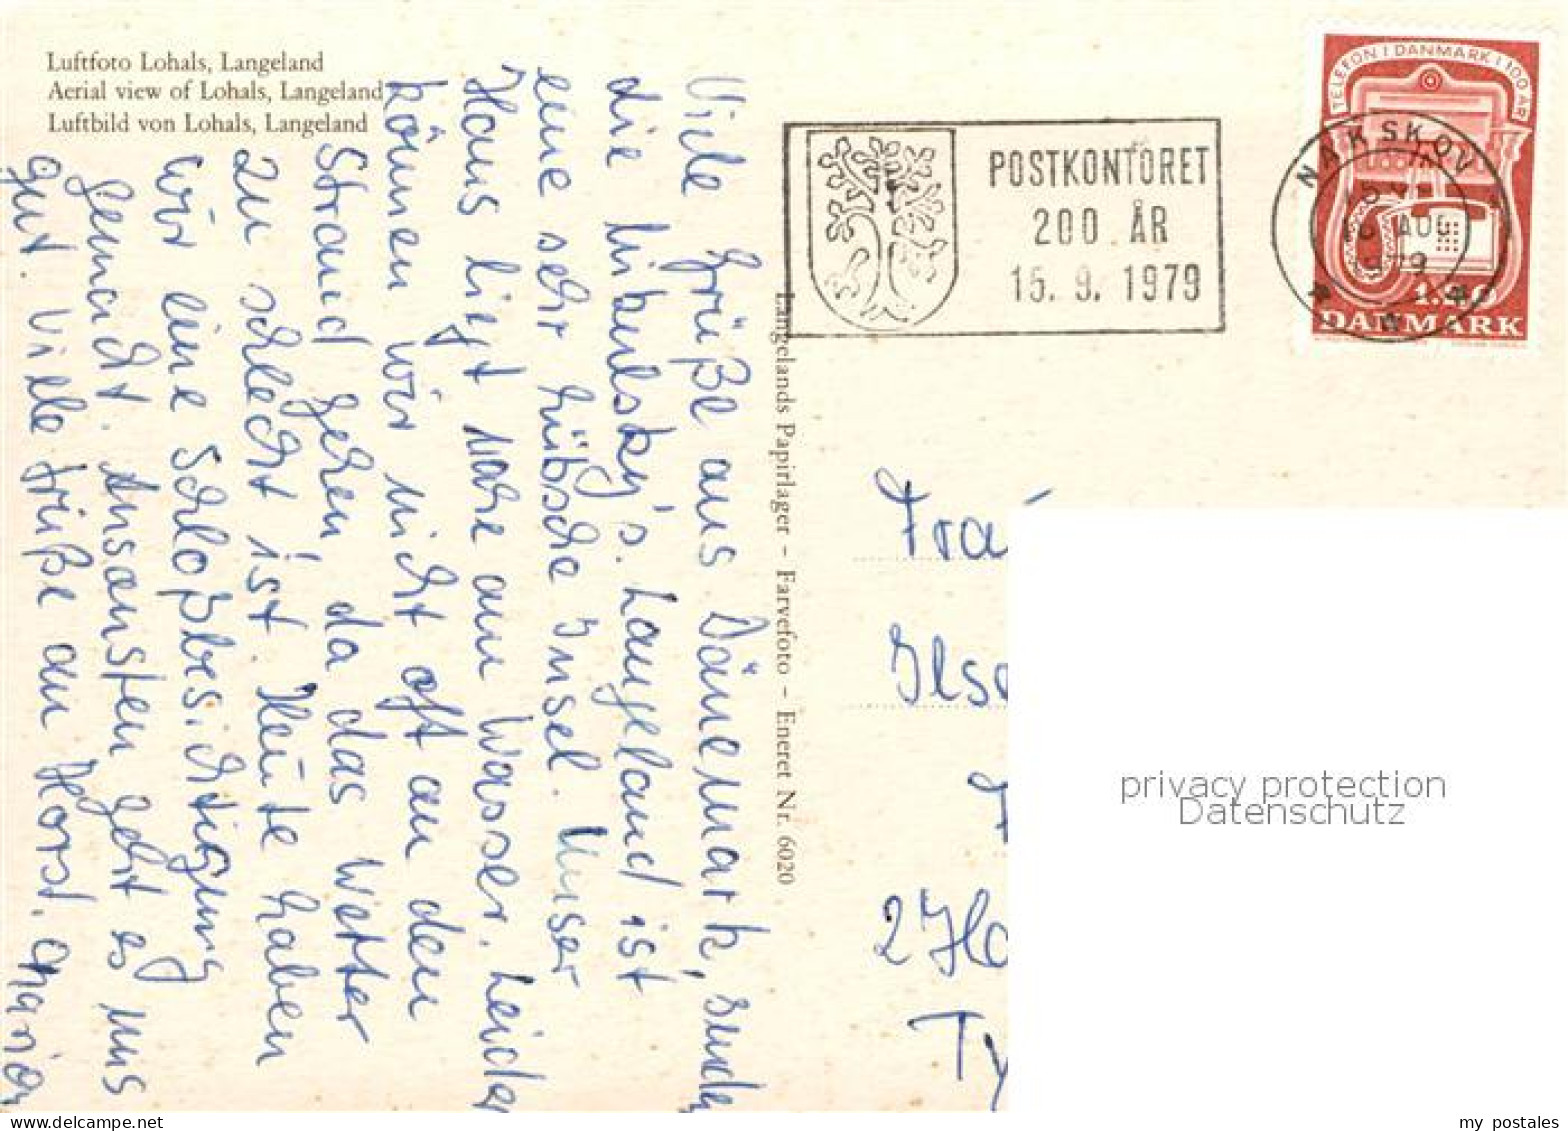 Luftfoto Lohals, Langeland
Aerial view of Lohals, Langeland
Luftbild von Lohals, Langeland
Viele Grüße aus Dänemark, senden
die Libulsky's. Langeland ist
eine sehr hübsche Insel. Unser
Haus liegt nahe am Wasser. Leider
können wir nicht oft an den
Strand gehen, da das Wetter
zu schlecht ist. Heute haben
wir eine Schloßbesichtigung
gemacht. Ansonsten geht es uns
gut. Viele Grüße an Horst.
Langelands Papirlager – Farvefoto – Eneret Nr. 6020
POSTKONTORET
200 ÅR
15. 9. 1979
NAKSKOV
AUG
TELEFON I DANMARK I 100 ÅR
DANMARK
Ilse
2 Ha
Ty
privacy protection
Datenschutz
delcampe.net
my_postales